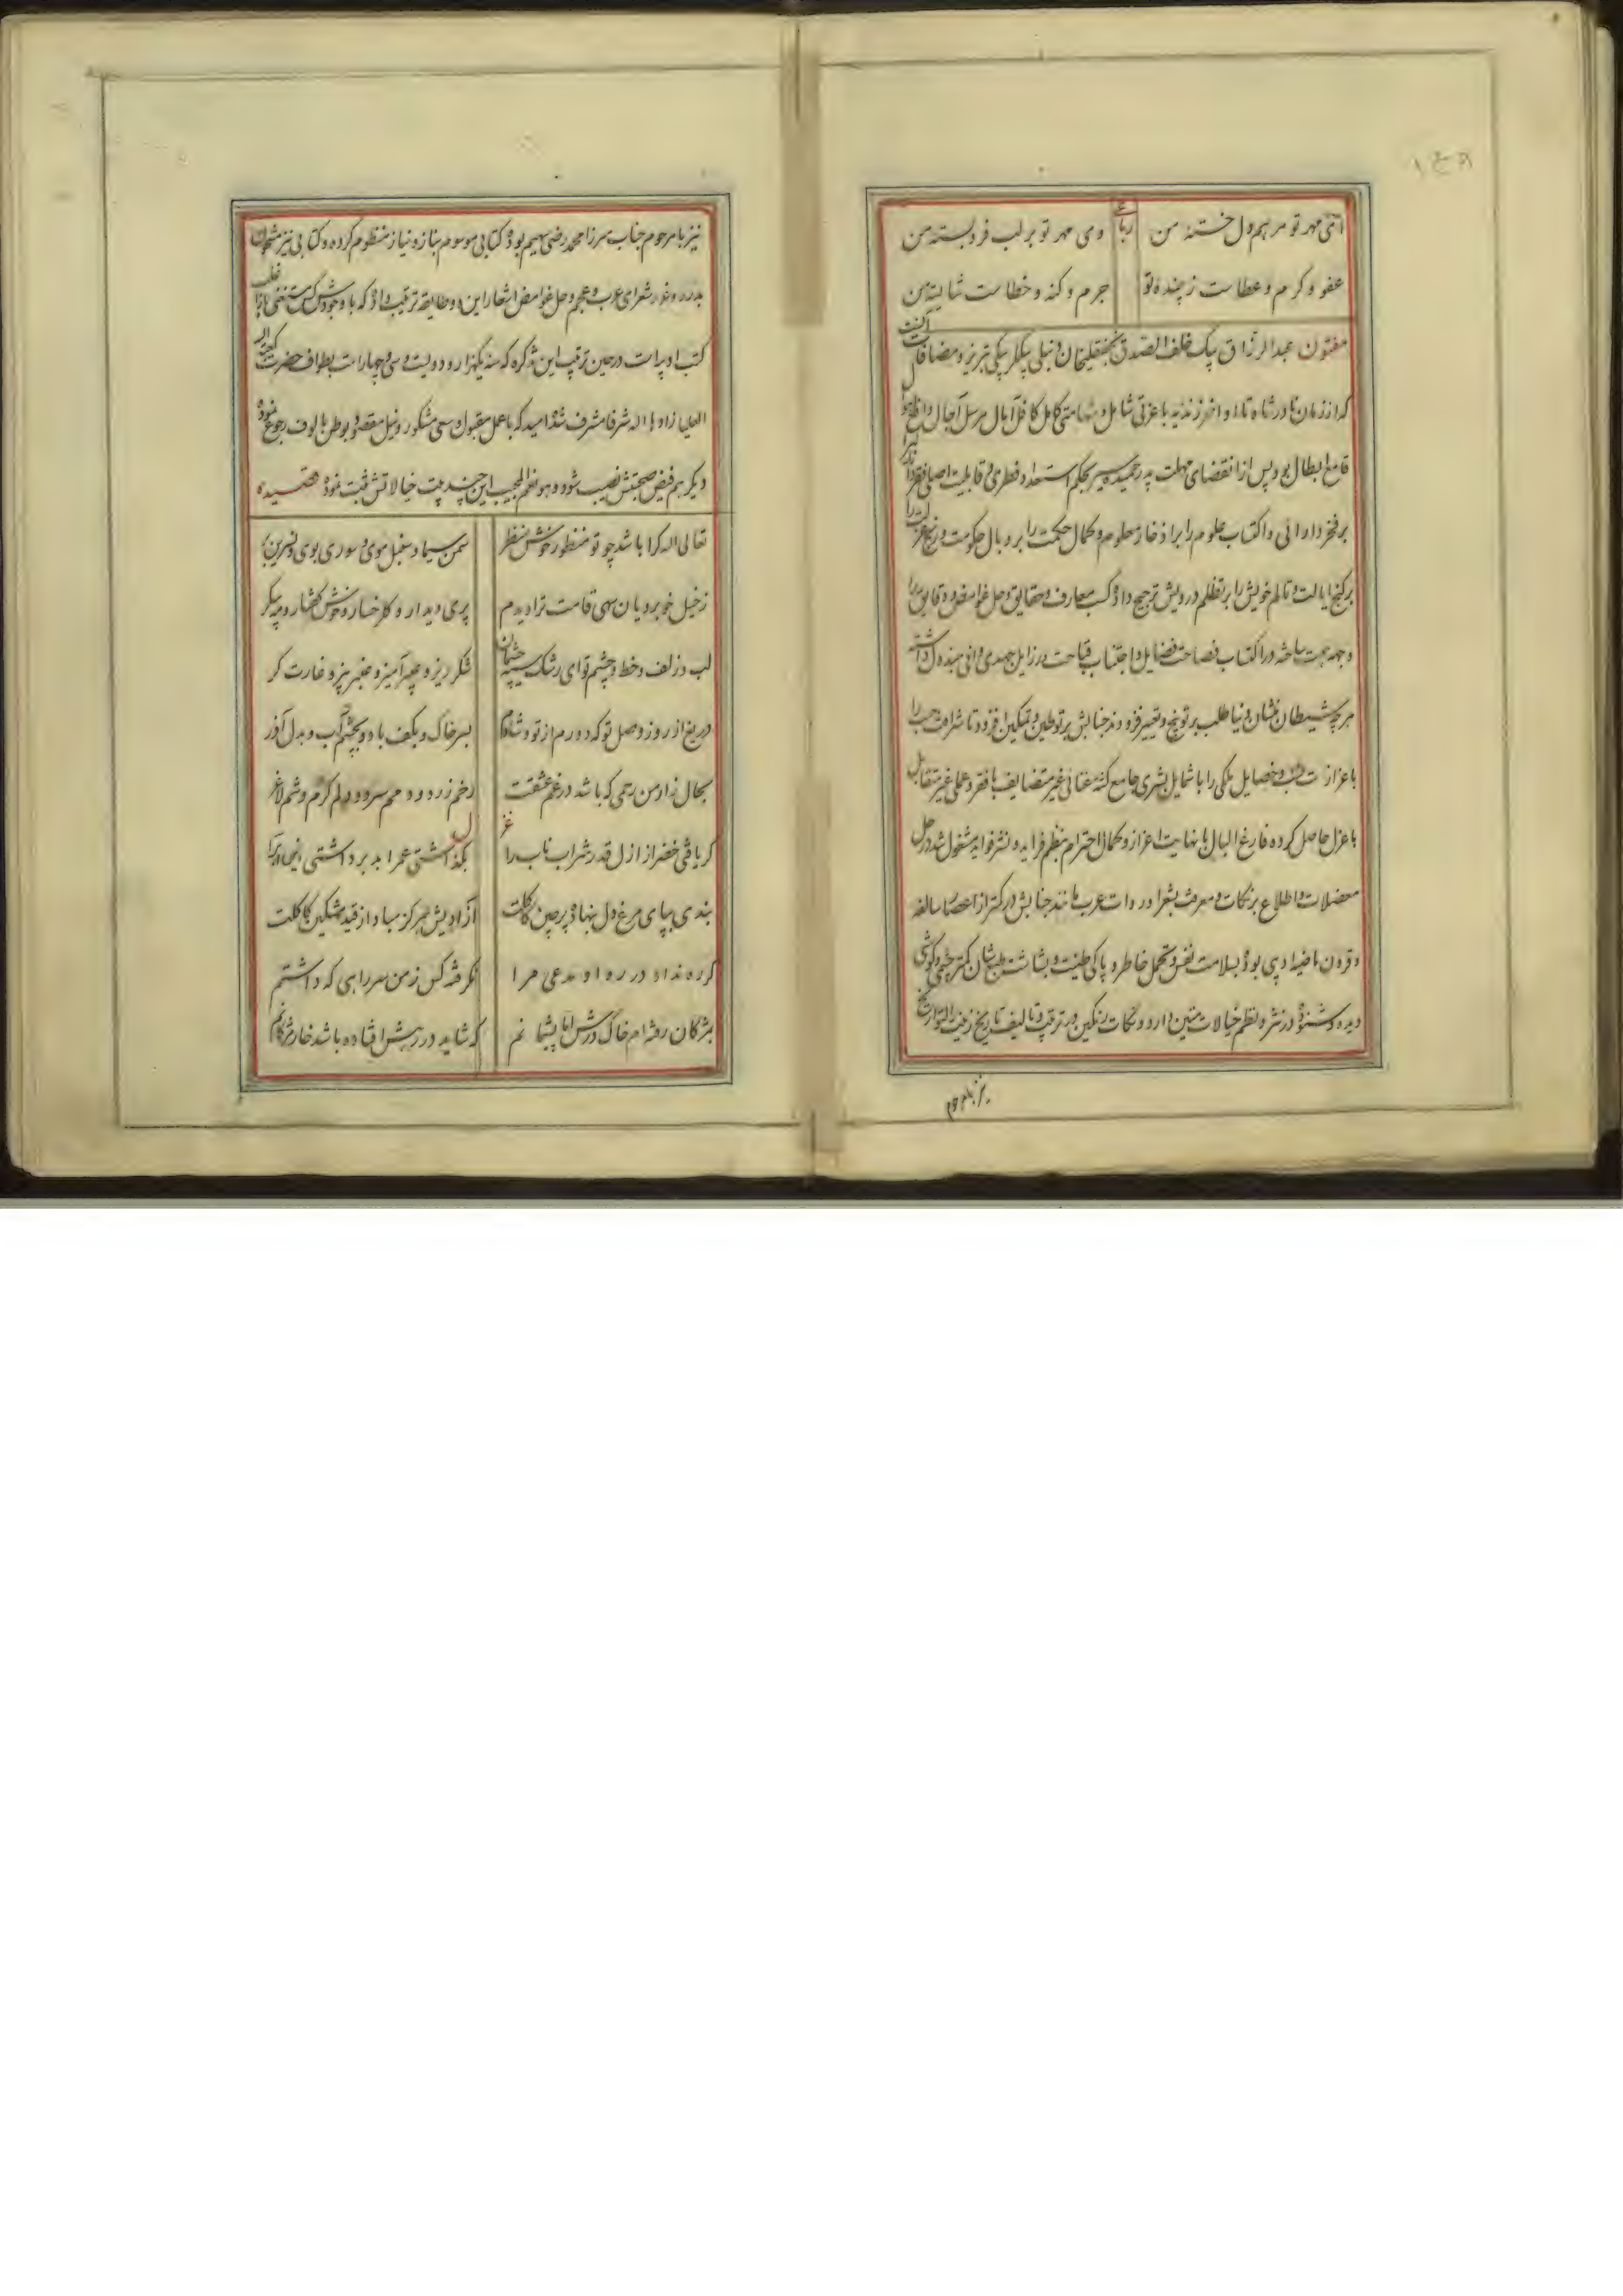 ۱۴۹
رباعی
ای مهر تو مرهم دل خسته من
وی مهر تو بر لب فرو بسته من
عفو و کرم و عطاست زیبنده تو
جرم و کنه و خطاست شایسته من
مفتون عبدالرزاق بیک خلف الصدق نجفقلیخان دنبلی بیکلر بیکی تبریز و مضافات
که از زمان نادر شاه تا اواخر زندیه با عزتی شامل و شهامتی کامل کافل آمال مرسل آجال و
قامع ابطال بود پس از انقضای مهلت پدر حمیده سیر بحکم استعداد فطری و قابلیت اصلی فقر را
بر فخر دارائی و اکتساب علوم را بر ادخار معلوم و کمال حکمت را بر وبال حکومت و رنج عزلت را
بر کنج ایالت و تالم خویش را بر تظلم درویش ترجیح داده کسب معارف و حقایق و حل غوامض و دقایق را
وجهه همت ساخته در اکتساب فصاحت فضایل و اجتناب قباحت رزایل جهدی وافی مبذول داشته
هر چه شیطان منشان دنیا طلب بر توبیخ و تعییر فزودند جنابش بر توطین و تمکین افزود تا شرافت حسب را
با عزازت نسب و خصایل ملکی را با شمایل بشری جامع کشته غنائی غیر متضایف با فقر و عملی غیر متقابل
با عزل حاصل کرده فارغ البال با نهایت اعزاز و کمال احترام بنظم فراید و نشر فواید مشغول شد در حل
معضلات و اطلاع بر نکات و معرفت بشعرا و روات عرب مانند جنابش در کمتر از اعصار سالفه
و قرون ماضیه ادیبی بوده بسلامت نفس و تحمل خاطر و پاکی طینت و بشاشت طبع ایشان کمتر چشمی و کوشی
دیده و شنوده در نثر و نظم خیالات متین دارد و نکات رنگین در ترتیب و تالیف تاریخ زینت التواریخ
نیز با مرحوم
نیز با مرحوم جناب میرزا محمد رضی سهیم بوده کتابی موسوم بناز و نیاز منظوم کرده و کتابی نیز
بدرر و غرر شعرای عرب و عجم و حل غوامض اشعار این دو طایفه ترتیب داده که با وجودش کس مستغنی از اغلب
کتب ادبیات در حین ترتیب این تذکره که سنه یکهزار و دویست و سی و چهار است بطواف حضرت کعبه
العلیا زادها الله شرفا مشرف شده امید که با عمل مقبول و سعی مشکور و نیل مقصود بوطن مالوف رجوع نموده
دیکر هم فیض صحبتش نصیب شود و هو نعم المجیب این چند بیت خیالاتش ثبت نمود قصیده
تعالی الله کرا باشد چو تو منظور خوش منظر
سمن سیما و سنبل موی و سوری بوی و نسرین بر
ز خیل خوبرویان سهی قامت ترا دیدم
پری دیدار و کلرخسار و خوش گفتار و مه پیکر
لب و زلف و خط و چشم تو ای رشک سیه چشمان
شکر ریز و عبیر آمیز و عنبر بیز و غارت کر
دریغ از روز وصل تو که دورم از تو و شادم
بسر خاک و بکف باد و بچشم آب و بدل آذر
بحال زار من رحمی که باشد در غم عشقت
رخم زرد و دمم سرد و دلم کرم و تنم لاغر
غزل
کر یافتی خضر از ازل قدر شراب ناب را
بگذاشتی عمر ابد برداشتی این آب را
بندی بپای مرغ دل بنهاد پر چین کاکلت
آزادیش هرکز مباد از قید مشکین کاکلت
کر ره نداد در ره او مدعی مرا
نگرفته کس ز من سر راهی که داشتم
بمژکان رفته‌ام خاک درش اما پشیمانم
که شاید در رهش افتاده باشد خار مژکانم